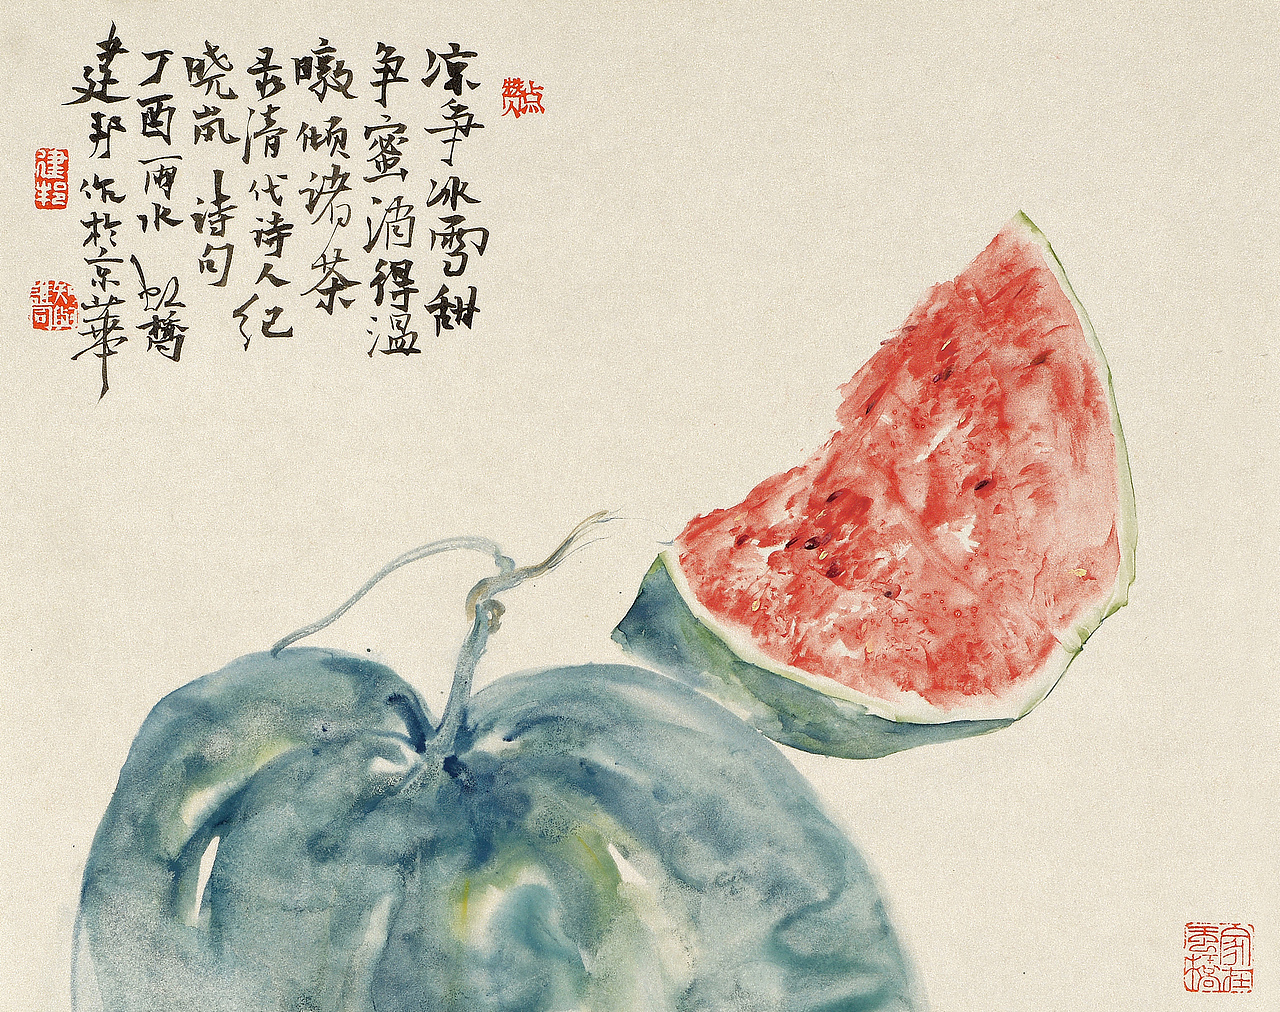 凉争冰雪甜
争蜜消得温
暾倾诸茶
录清代诗人纪
晓岚诗句
丁酉雨水 虹橋
建邦作於京華
点赞
建邦